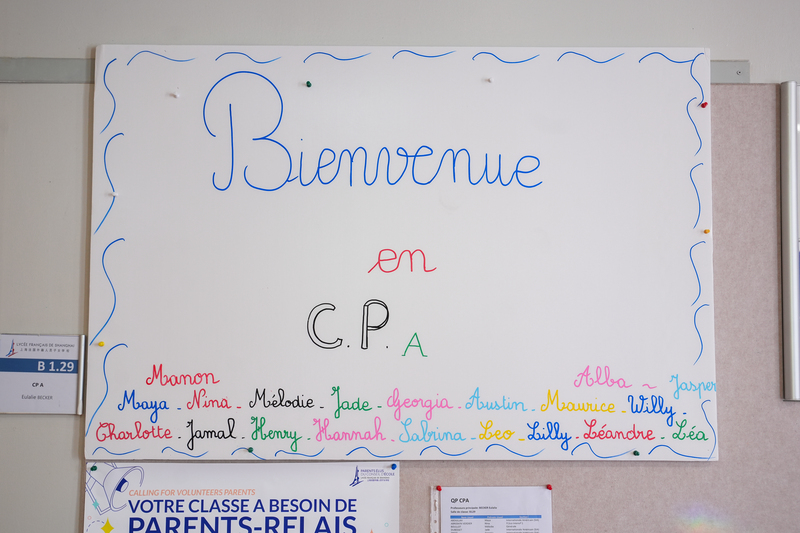 Bienvenue
en
C.P. A
Manon Alba ~ Jasper
Maya - Nina - Mélodie - Jade - Georgia - Austin - Maurice - Willy -
Charlotte - Jamal - Henry - Hannah - Sabrina - Leo - Lilly - Léandre - Léa
LYCÉE FRANÇAIS DE SHANGHAI
B 1.29
CP A
Eulalie BECKER
CALLING FOR VOLUNTEERS PARENTS
VOTRE CLASSE A BESOIN DE
PARENTS-RELAIS
QP CPA